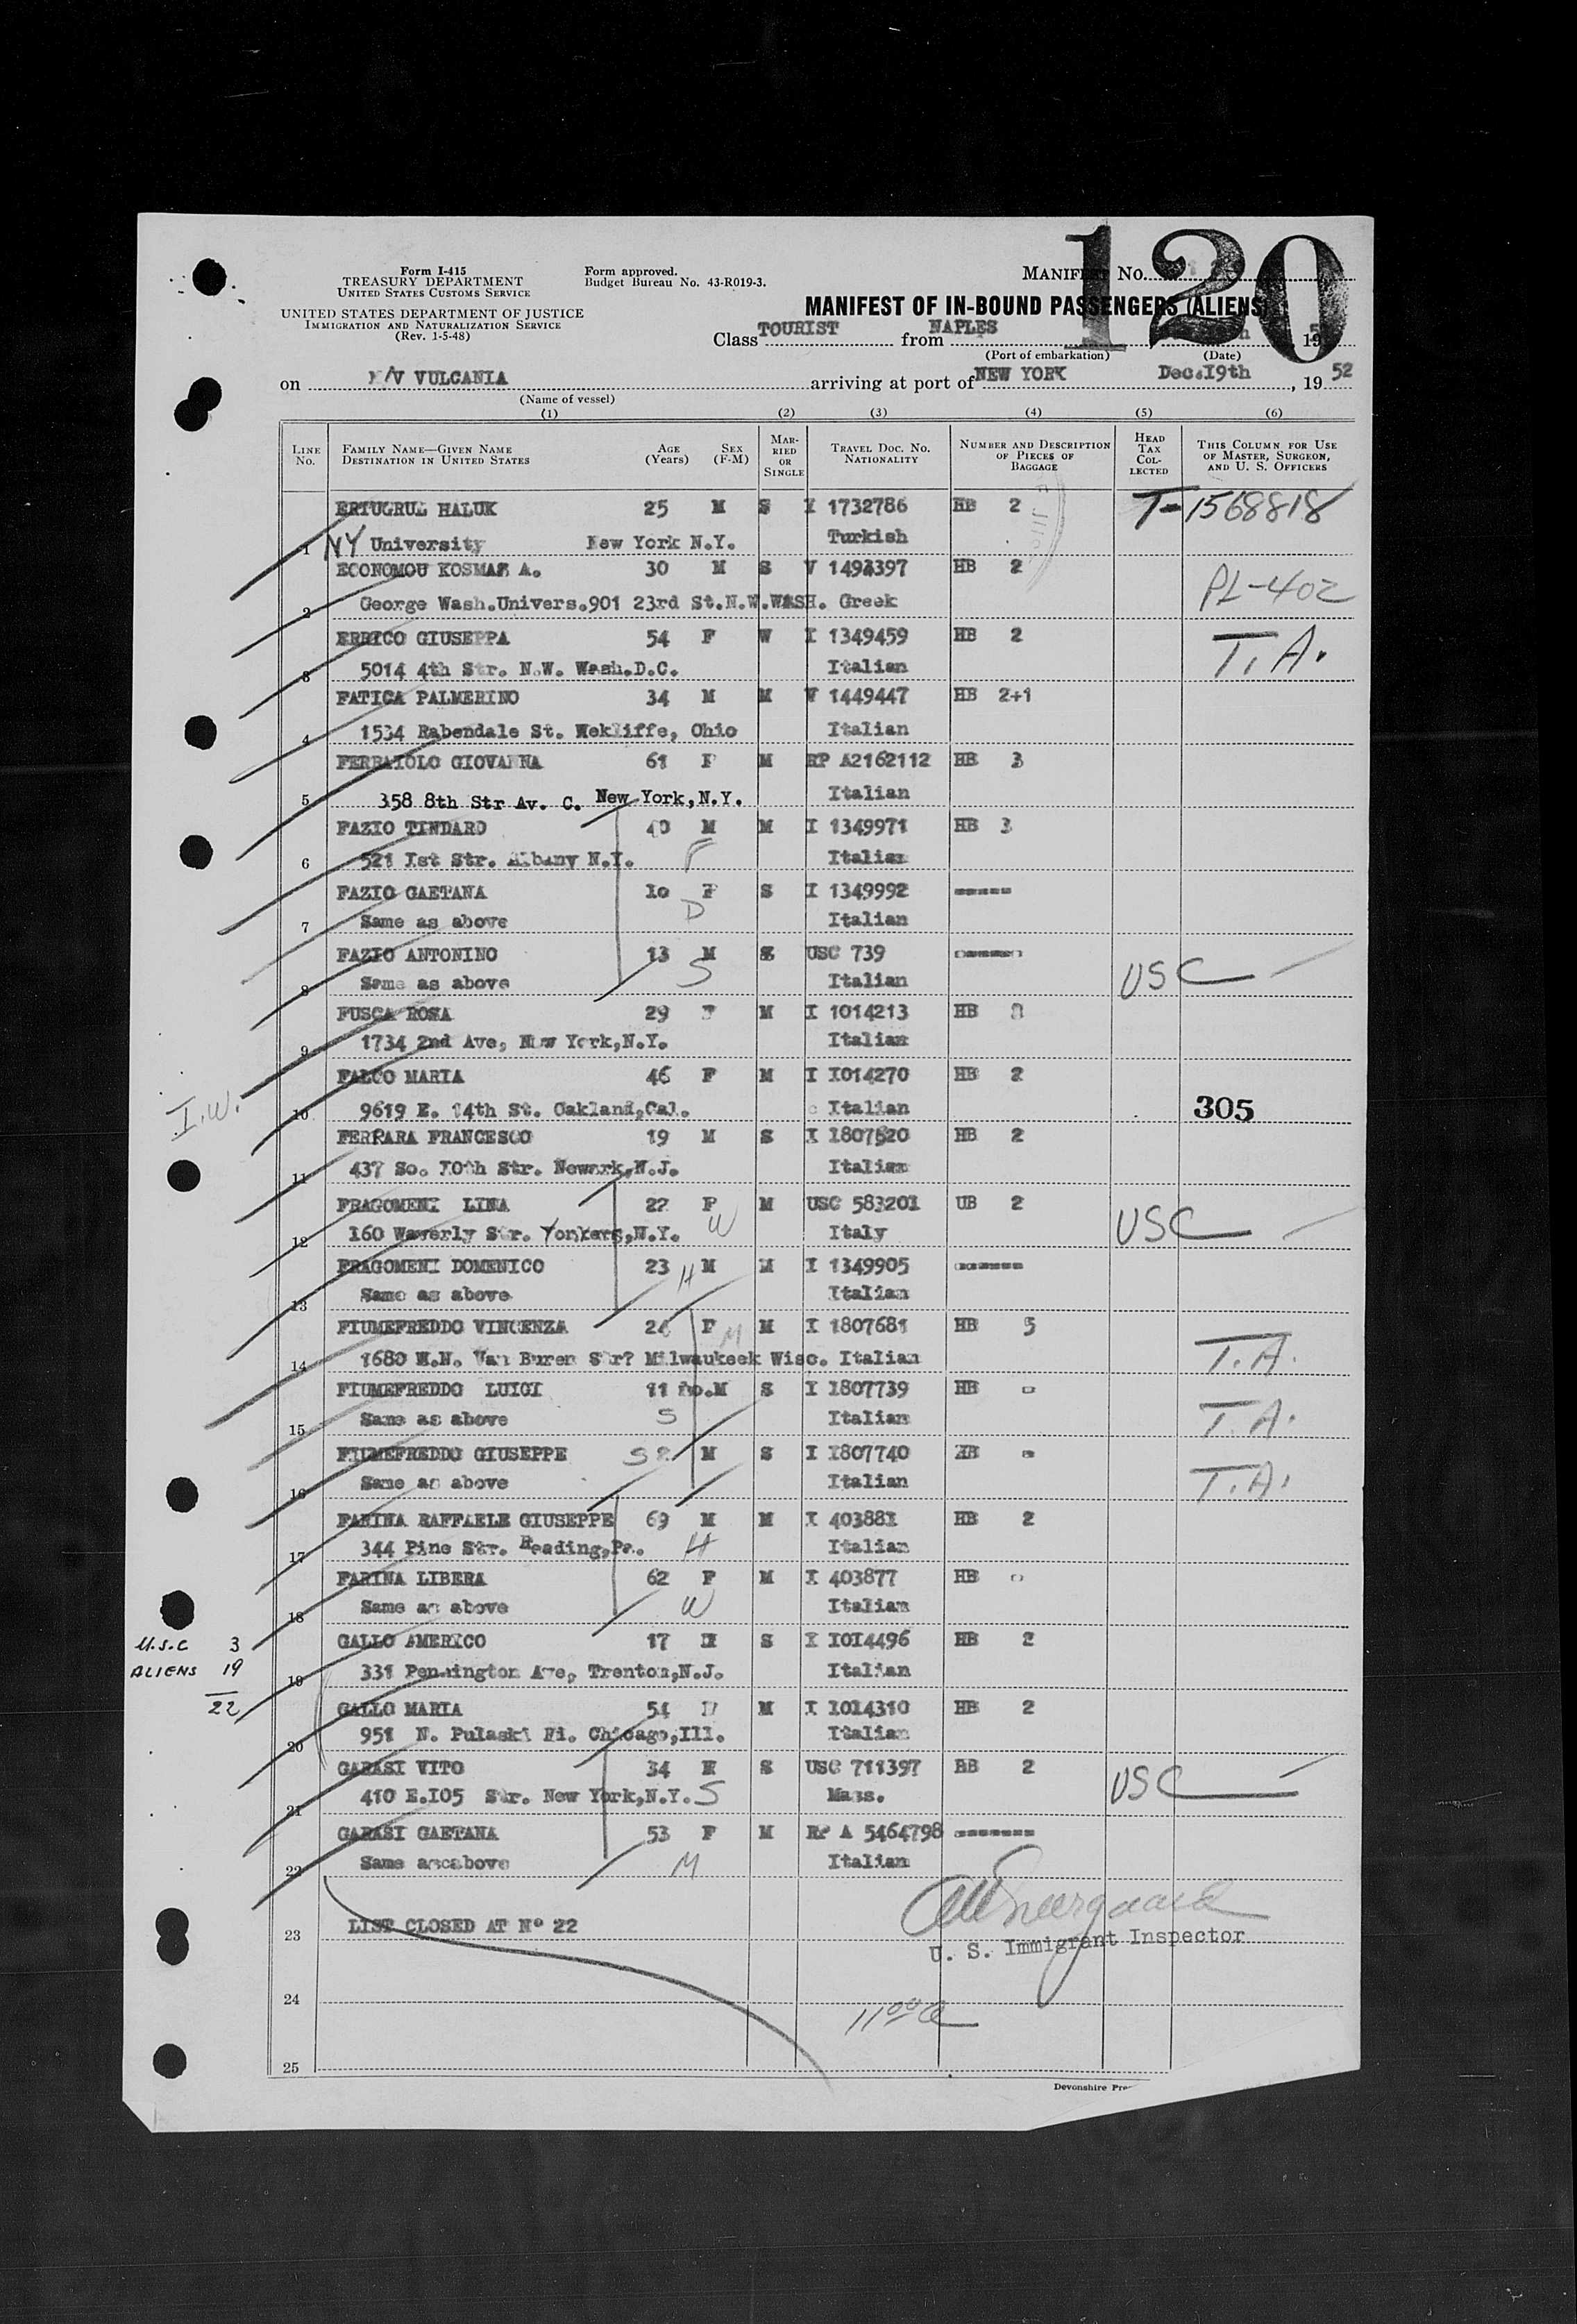 120
Form I-415
TREASURY DEPARTMENT
UNITED STATES CUSTOMS SERVICE
UNITED STATES DEPARTMENT OF JUSTICE
IMMIGRATION AND NATURALIZATION SERVICE
(Rev. 1-5-48)
Form approved.
Budget Bureau No. 43-R019-3.
MANIFEST No.
MANIFEST OF IN-BOUND PASSENGERS (ALIENS)
Class TOURIST from NAPLES , 19
(Port of embarkation) (Date)
on M/V VULCANIA arriving at port of NEW YORK Dec.I9th , 19 52
(Name of vessel)
(1) (2) (3) (4) (5) (6)
LINE No. FAMILY NAME—GIVEN NAME DESTINATION IN UNITED STATES AGE (Years) SEX (F-M) MARRIED OR SINGLE TRAVEL DOC. NO. NATIONALITY NUMBER AND DESCRIPTION OF PIECES OF BAGGAGE HEAD TAX COLLECTED THIS COLUMN FOR USE OF MASTER, SURGEON, AND U. S. OFFICERS
ERTUGRUL HALUK 25 M S 1732786 HB 2 T-1568818
1 NY University New York N.Y. Turkish
ECONOMOU KOSMAS A. 30 M S V 1493397 HB 2
2 George Wash.Univers.901 23rd St.N.W.WASH. Greek PL-402
ERRICO GIUSEPPA 54 F W I 1349459 HB 2 T.A.
3 5014 4th Str. N.W. Wash.D.C. Italian
FATICA PALMERINO 34 M M V 1449447 HB 2+1
4 1534 Rabendale St. Wekliffe, Ohio Italian
FERRAIOLO GIOVANNA 61 F M RP A2162112 HB 3
5 358 8th Str Av. C. New York,N.Y. Italian
FAZIO TINDARO 40 M M I 1349971 HB 3
6 521 Ist Str. Albany N.Y. F Italian
FAZIO GAETANA Io F S I 1349992 -----
7 Same as above D Italian
FAZIO ANTONINO 13 M S USC 739 ------
8 Same as above S Italian USC
FUSCA ROSA 29 F M I 1014213 HB
9 1734 2nd Ave, New York,N.Y. Italian
FALCO MARIA 46 F M I I014270 HB 2
I.W.
10 9619 E. 14th St. Oakland,Cal. Italian 305
FERRARA FRANCESCO 19 M S I 1807520 HB 2
11 437 So. I0th Str. Newark,N.J. Italian
FRAGOMENI LINA 22 F M USC 583201 UB 2
12 160 Waverly Str. Yonkers,N.Y. W Italy USC
FRAGOMENI DOMENICO 23 H M M I 1349905 ------
13 Same as above Italian
FIUMEFREDDO VINCENZA 24 F M M I 1807681 HB 5
14 1680 W.N. Van Buren Str? Milwaukeek Wisc. Italian T.A.
FIUMEFREDDO LUIGI 11 mo.M S I 1807739 HB -
15 Same as above S Italian T.A.
FIUMEFREDDO GIUSEPPE S 2 M S I 1807740 HB -
16 Same as above Italian T.A.
FARINA RAFFAELE GIUSEPPE 69 M M I 403881 HB 2
17 344 Pine Str. Reading,Pa. H Italian
FARINA LIBERA 62 F M I 403877 HB -
18 Same as above W Italian
U.S.C 3
GALLO AMERICO 17 M S I I0I4496 HB 2
ALIENS 19
19 331 Pennington Ave, Trenton,N.J. Italian
22
GALLO MARIA 54 F M I 1014310 HB 2
20 951 N. Pulaski Chicago,Ill. Italian
GARASI VITO 34 M S USC 711397 HB 2
21 410 E.I05 Str. New York,N.Y. S Mass. USC
GARASI GAETANA 53 F M RP A 5464798 -------
22 Same ascabove M Italian
23 LIST CLOSED AT Nº 22
U. S. Immigrant Inspector
24 11 00 a
25
Devonshire